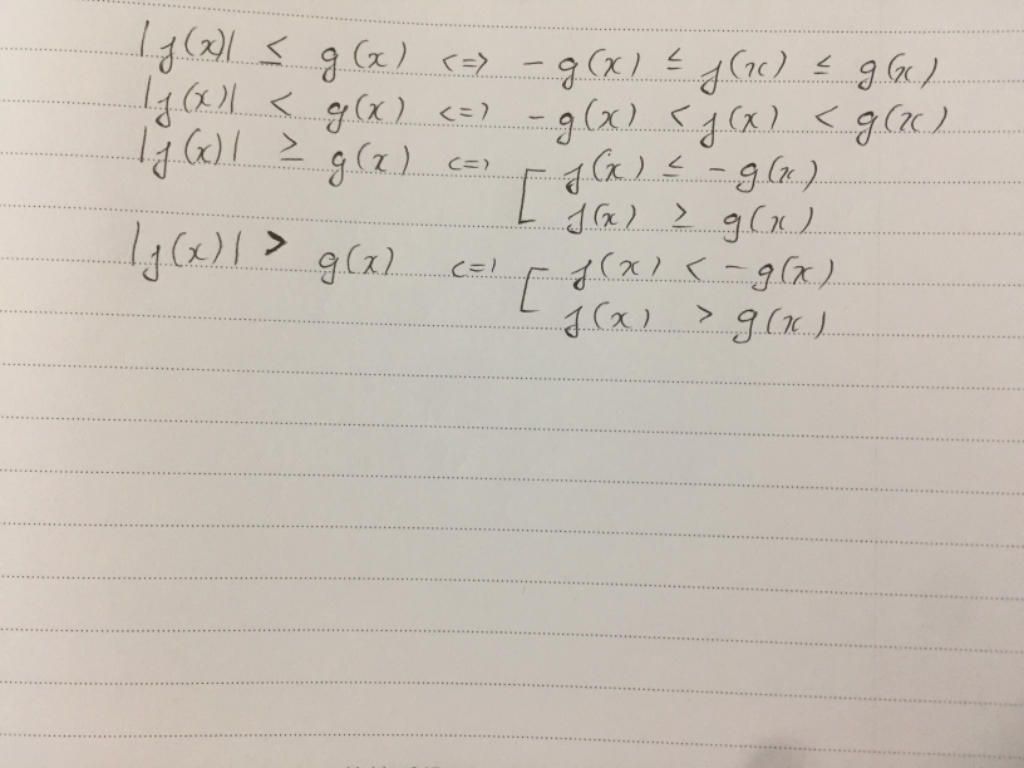 |f(x)| ≤ g(x) <=> -g(x) ≤ f(x) ≤ g(x)
|f(x)| < g(x) <=> -g(x) < f(x) < g(x)
|f(x)| ≥ g(x) <=> [ f(x) ≤ -g(x)
f(x) ≥ g(x)
|f(x)| > g(x) <=> [ f(x) < -g(x)
f(x) > g(x)